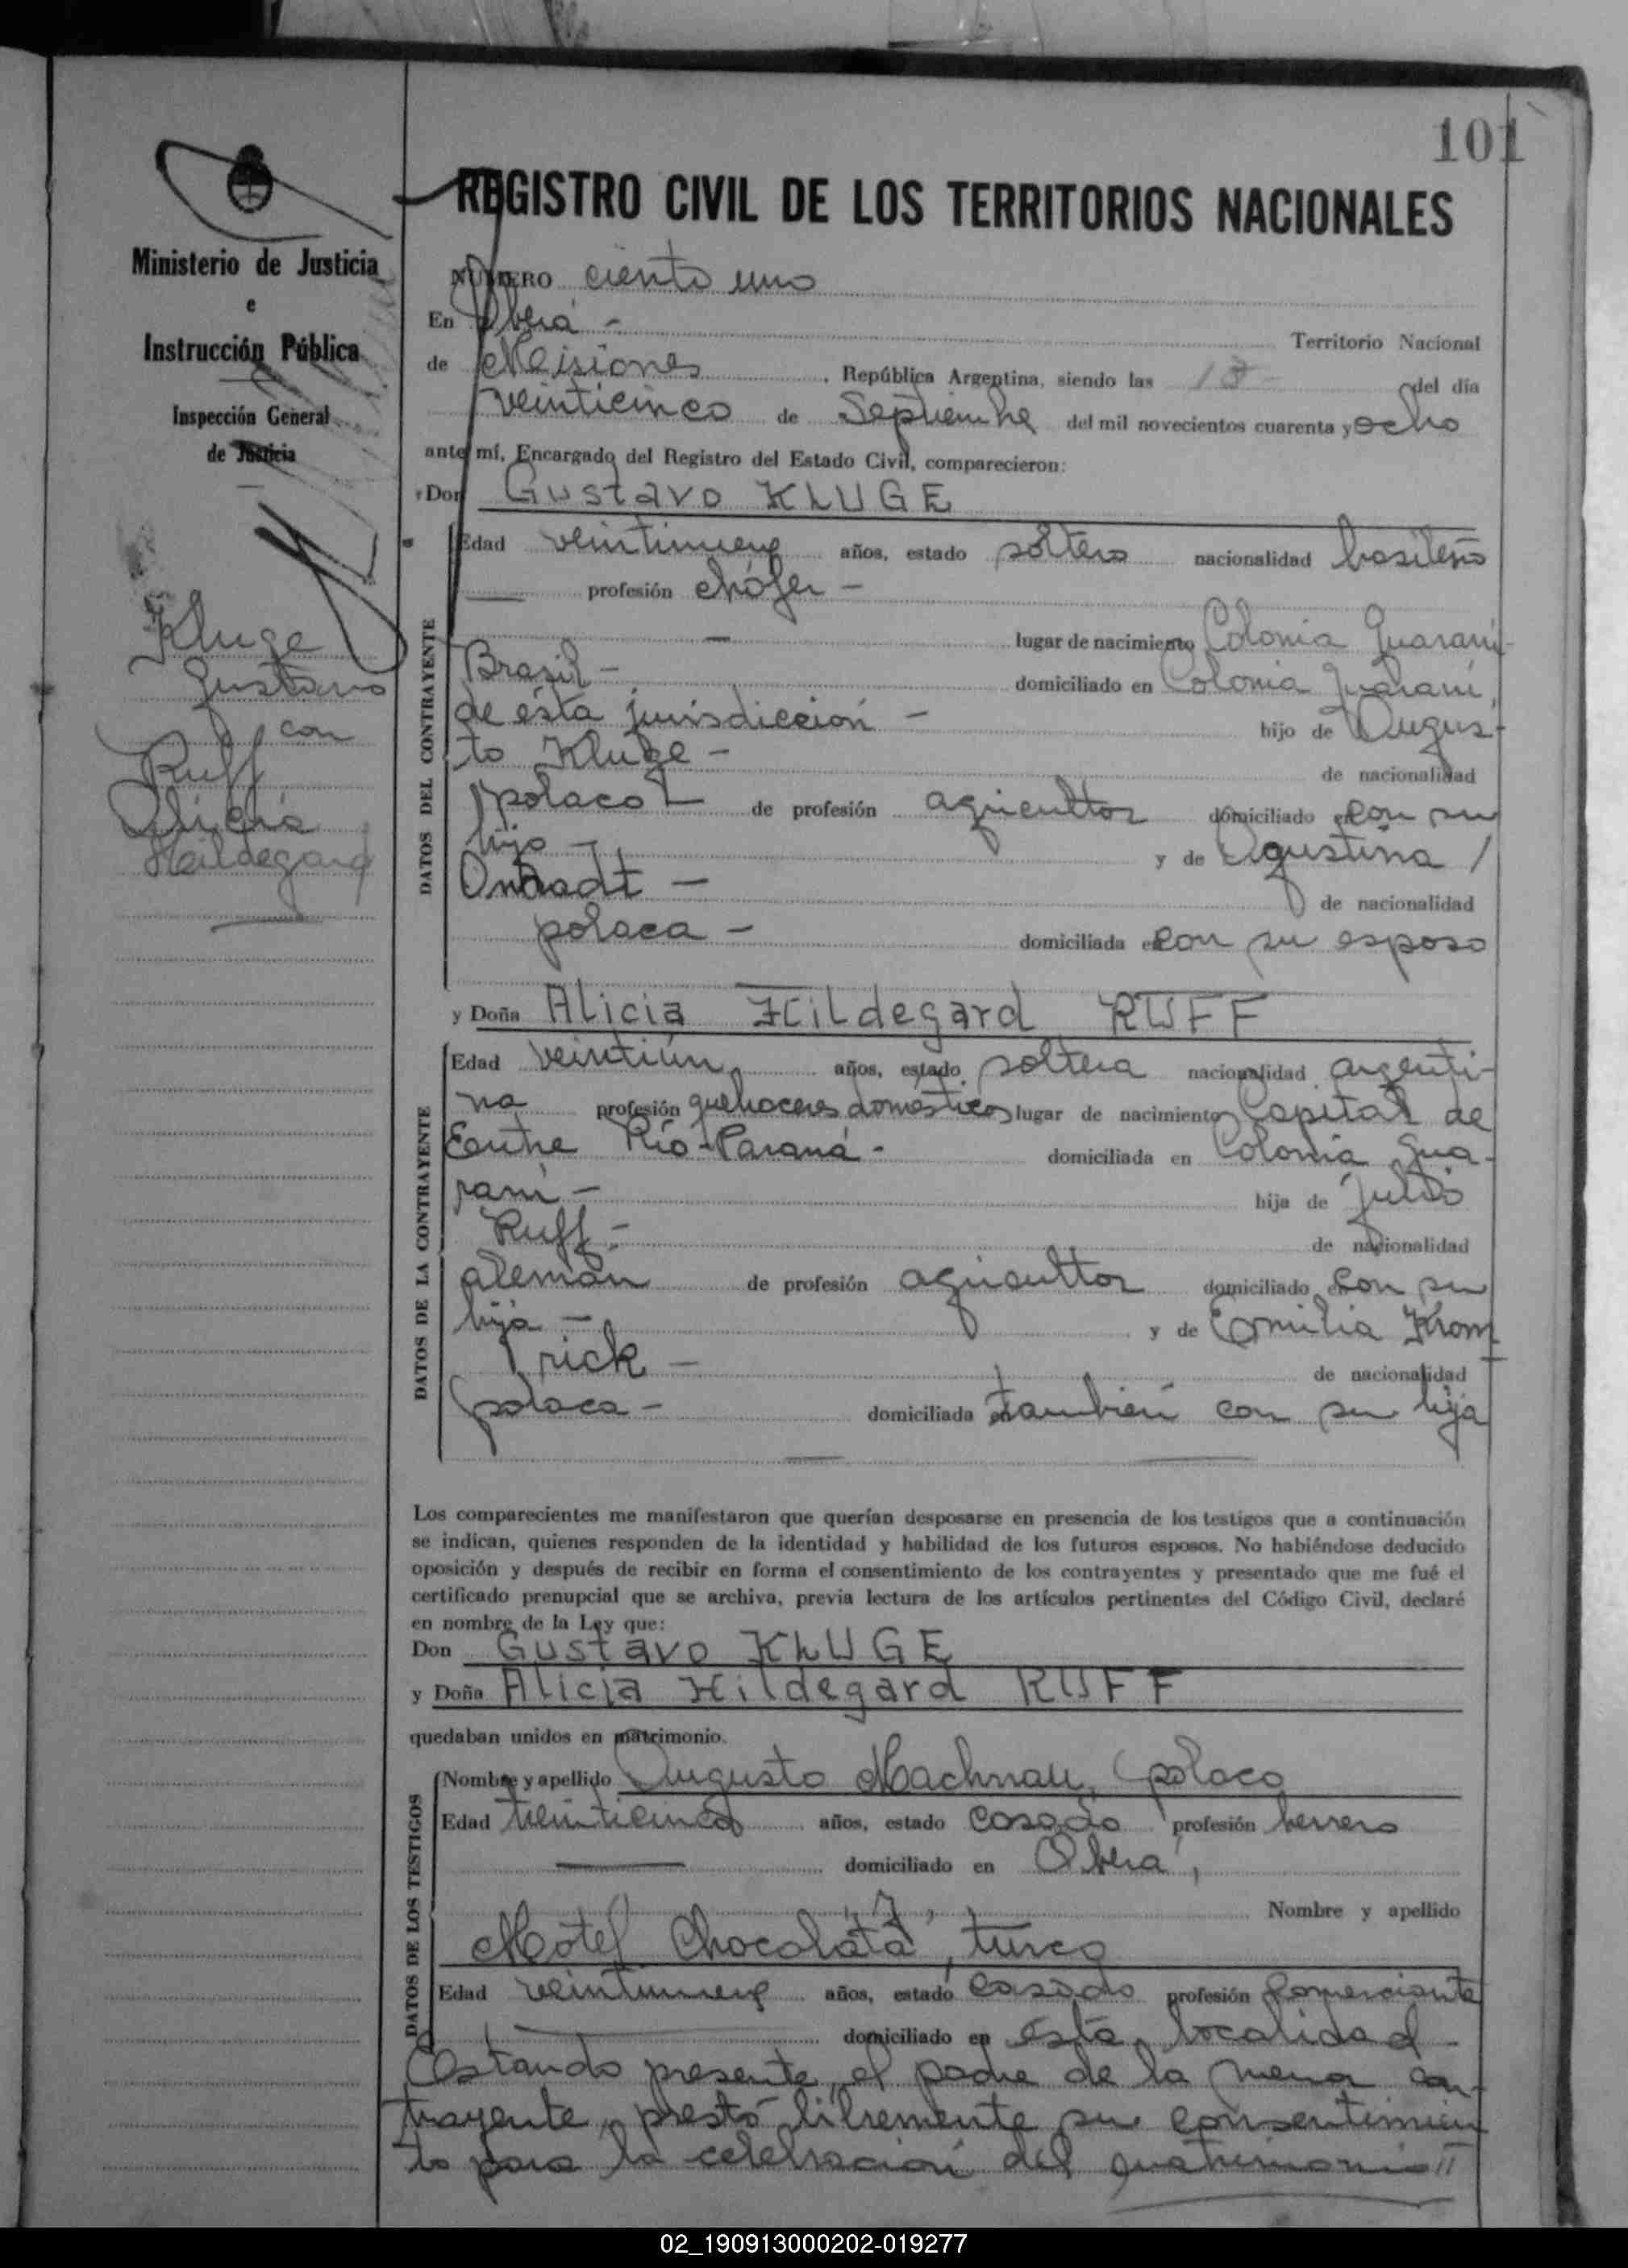 101
REGISTRO CIVIL DE LOS TERRITORIOS NACIONALES
Ministerio de Justicia
e
Instrucción Pública
Inspección General
de Justicia
Kluge
Gustavo
con
Ruff
Alicia
Hildegard
NÚMERO ciento uno
En Oberá -
Territorio Nacional
de Misiones , República Argentina, siendo las del día
veinticinco de Septiembre del mil novecientos cuarenta y ocho
ante mí, Encargado del Registro del Estado Civil, comparecieron:
Don Gustavo KLUGE
DATOS DEL CONTRAYENTE
Edad veintinueve años, estado soltero nacionalidad brasileño
profesión chófer -
lugar de nacimiento Colonia Guaraní-
Brasil - domiciliado en Colonia Guaraní,
de ésta jurisdicción - hijo de Augus-
to Kluge - de nacionalidad
polaco - de profesión agricultor domiciliado en con su
hijo - y de Agustina
de nacionalidad
polaca - domiciliada en con su esposo
y Doña Alicia Hildegard RUFF
DATOS DE LA CONTRAYENTE
Edad veintiún años, estado soltera nacionalidad argenti-
na profesión quehaceres domésticos lugar de nacimiento Capital de
Entre Río-Paraná - domiciliada en Colonia Gua-
raní - hija de Julio
Ruff - de nacionalidad
alemán de profesión agricultor domiciliado en con su
hija - y de Emilia Krom
Prick - de nacionalidad
polaca - domiciliada en también con su hija
Los comparecientes me manifestaron que querían desposarse en presencia de los testigos que a continuación
se indican, quienes responden de la identidad y habilidad de los futuros esposos. No habiéndose deducido
oposición y después de recibir en forma el consentimiento de los contrayentes y presentado que me fué el
certificado prenupcial que se archiva, previa lectura de los artículos pertinentes del Código Civil, declaré
en nombre de la Ley que:
Don Gustavo KLUGE
y Doña Alicia Hildegard RUFF
quedaban unidos en matrimonio.
DATOS DE LOS TESTIGOS
Nombre y apellido Augusto Machnau, polaco
Edad años, estado casado profesión herrero
domiciliado en Oberá,
Nombre y apellido
Motel Chocolata, turco
Edad veintinueve años, estado casado profesión comerciante
domiciliado en ésta localidad
Estando presente el padre de la menor con-
trayente, prestó libremente su consentimien
to para la celebración del matrimonio
02_190913000202-019277